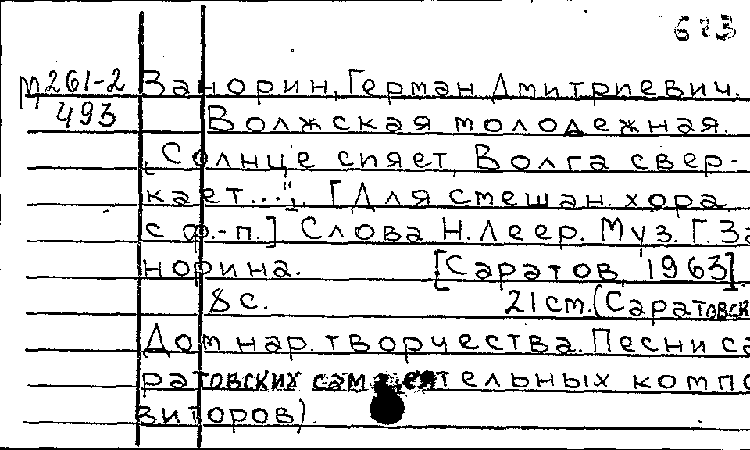 673
М 261-2 Занорин, Герман Дмитриевич.
493 Волжская молодежная.
„Солнце сияет, Волга свер-
кает...“. [Для смешан. хора
с ф.-п.] Слова Н. Леер. Муз. Г. За
норина. [Саратов, 1963].
8 с. 21 см. (Саратовск
Дом нар. творчества. Песни са
ратовских самодеятельных компо
зиторов).